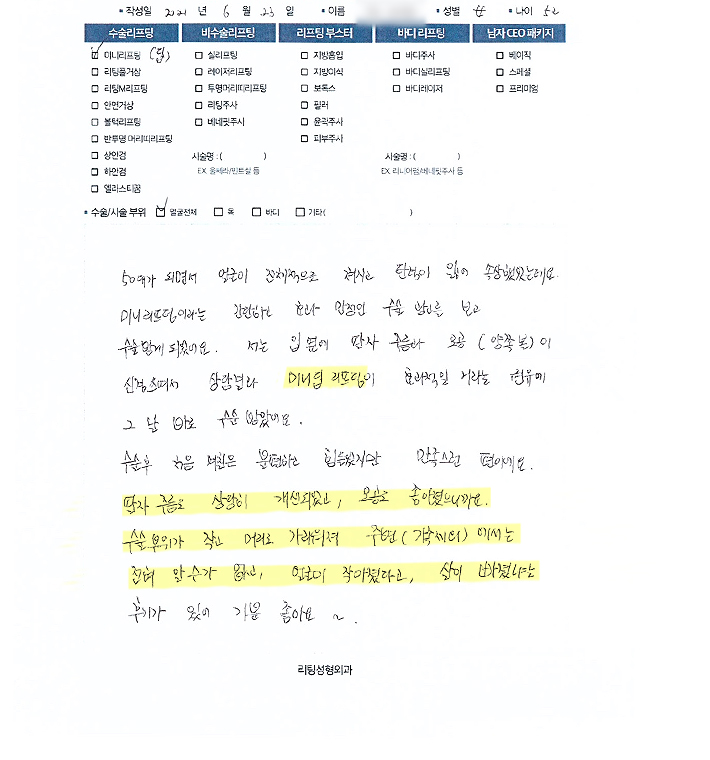 • 작성일 2021 년 6 월 23 일 • 이름 • 성별 女 • 나이 52
수술리프팅 비수술리프팅 리프팅 부스터 바디 리프팅 남자 CEO 패키지
미니리프팅 (옆) 실리프팅 지방흡입 바디주사 베이직
리팅풀거상 레이저리프팅 지방이식 바디실리프팅 스페셜
리팅M리프팅 투명머리띠리프팅 보톡스 바디레이저 프리미엄
안면거상 리팅주사 필러
볼턱리프팅 베네핏주사 윤곽주사
반투명 머리띠리프팅 피부주사
상안검 시술명 : ( ) 시술명 : ( )
하안검 EX. 울쎄라/민트실 등 EX. 리니어펌/베네핏주사 등
엘라스티꿈
• 수술/시술 부위 얼굴전체 목 바디 기타( )
50대가 되면서 얼굴이 전체적으로 쳐지고 탄력이 없어 속상했었는데요.
미니리프팅이라는 간편하고 효과 만점인 수술 광고를 보고
수술받게 되었어요. 저는 입 옆에 팔자 주름과 모공 (양쪽 볼)이
신경쓰여서 상담결과 미니옆 리프팅이 효과적일 거라는 권유에
그 날 바로 수술 받았어요.
수술후 처음 며칠은 불편하고 힘들었지만 만족스런 편이에요.
팔자 주름도 상당히 개선되었고, 모공도 좋아졌으니까요.
수술부위가 작고 머리로 가려져 주변(가족까지)에서는
전혀 알 수가 없고, 얼굴이 작아졌다고, 살이 빠졌냐는
후기가 있어 기분 좋아요 ~.
리팅성형외과